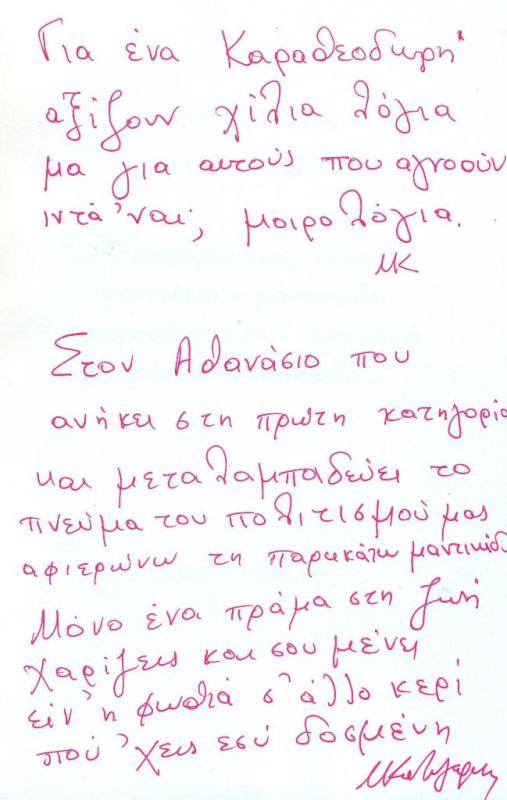 Για ένα Καραθεοδωρή
αξίζουν χίλια λόγια
μα για αυτούς που αγνοούν
ιντά 'ναι, μοιρολόγια.
ΜΚ
Στον Αθανάσιο που
ανήκει στη πρώτη κατηγορία
και μεταλαμπαδεύει το
πνεύμα του πολιτισμού μας
αφιερώνω τη παρακάτω μαντινάδα
Μόνο ένα πράμα στη ζωή
χαρίζεις και σου μένει
είν' η φωτιά σ' άλλο κερί
πού 'χεις εσύ δοσμένη